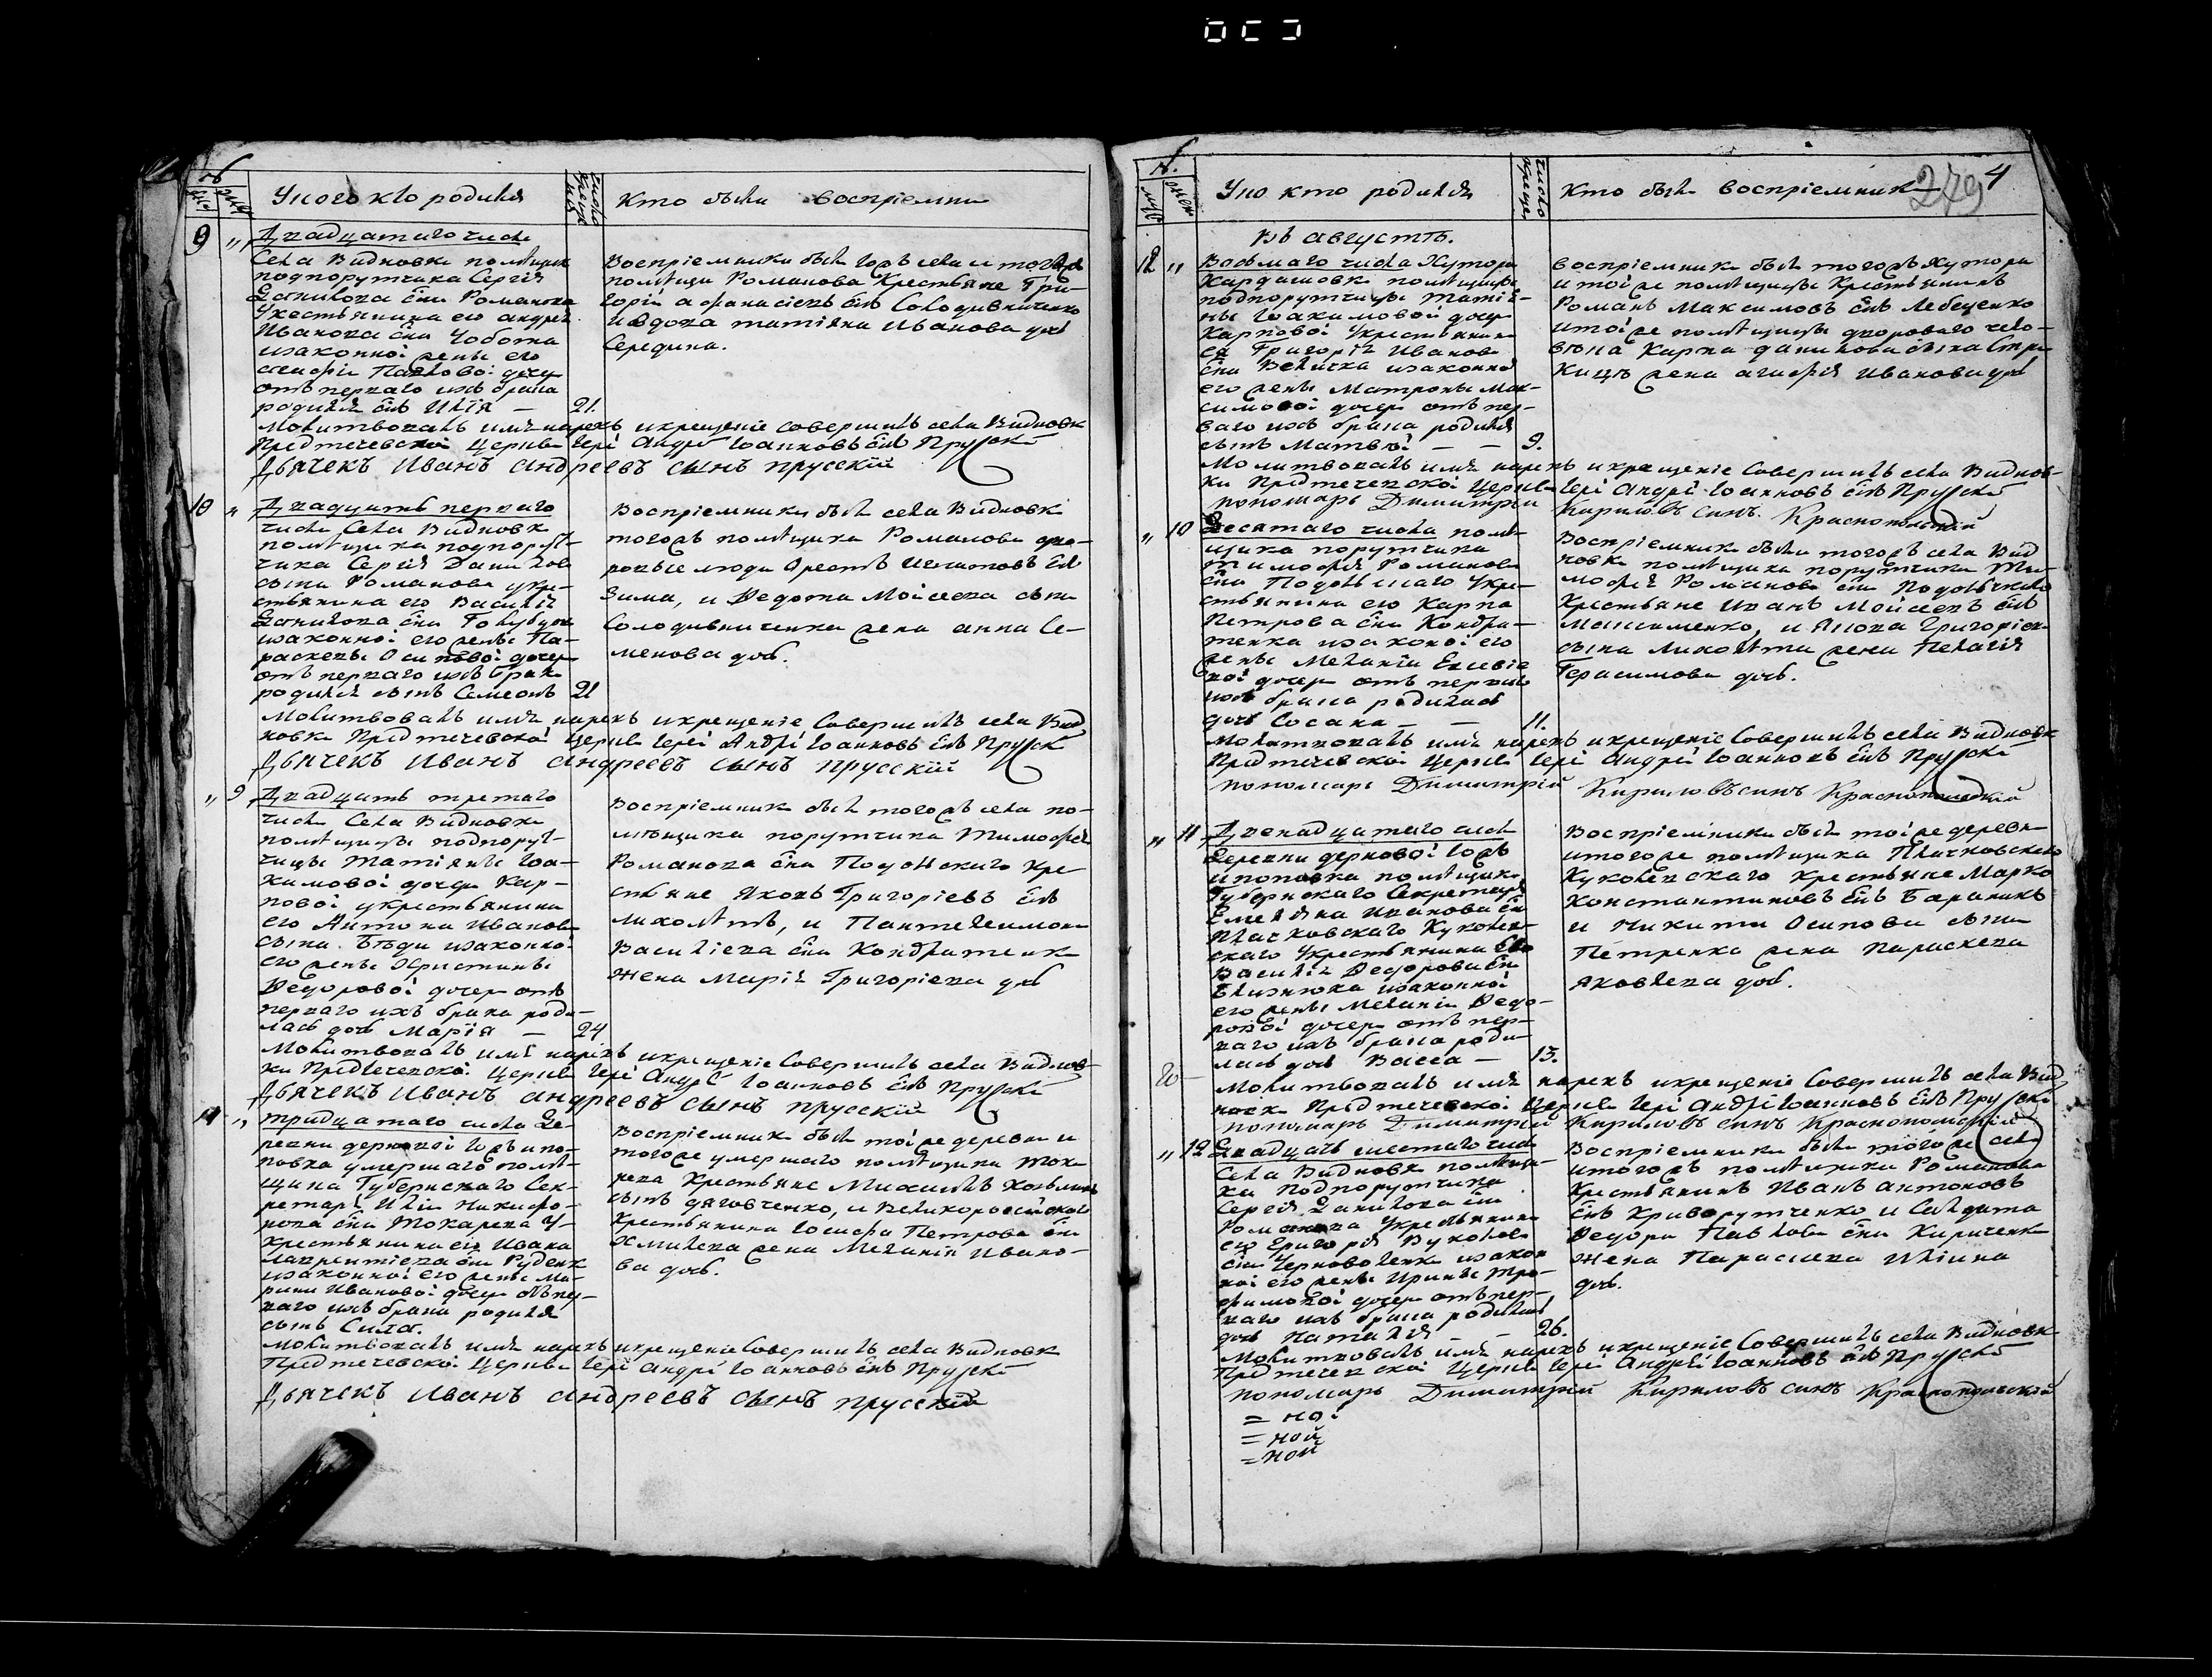 №
муж
жен
У кого кто родился
число крещения
Кто были восприемни
9 "
Двадцатаго числа
Села Видновки помѣщик
подпоручика Сергѣя
Данилова сна Романова
Укрестьянина его андрея
Иванова сна Чобота
изаконной жены его
Павловой дочер
отъ перваго ихъ брака
родился снъ Илія — 21.
Воспріемники были тогожъ села и тогожъ
помѣщи Романова Крестьяне Гри-
горій афанасіевъ снъ Солодивниченко
и вдова татіяна Иванова доч
Середина.
Молитвовалъ имя нарекъ икрещеніе совершилъ села Видновк
Предтечевской Церкви Іерей Андрей Іоанновъ снъ Прускій
Дьячекъ Иванъ андреевъ сынъ прусскій
10 "
Двадцать перваго
числа Села Видновк
помѣщика подпору-
чика Сергѣя Данилов
сына Романова укре-
стьянина его Василія
Данилова сна Голубцова
изаконной его жены Па-
раскевы Осиповой дочер
отъ перваго ихъ брака
родился сынъ Семеонъ 21
Воспріемники были села Видновки
тогожъ помѣщика Романова дво-
ровые люди Орестъ Игнатовъ снъ
Зима, и Федота Моисеева сына
Солодивниченка жена анна Се-
менова доч.
Молитвовалъ имя нарекъ икрещеніе Совершилъ села Вид
новки Предтечевской Церкви Іерей Андрей Іоанновъ снъ Прускій
Дьячекъ Иванъ андреевъ сынъ прусскій
" 9
Двадцать третяго
числа Села Видновки
помѣщицы подпору-
чицы Татіяны Іоа-
кимовой дочер Кар-
повой укрестьянина
его Антона Иванова
сына Бѣды изаконно
его жены Христины
Федоровой дочер отъ
перваго ихъ брака роди-
лась доч Марія — 24
Воспріемник были тогожъ села по-
мѣщика порутчика Тимофея
Романова сна Подольскаго Кре-
стьяне Яковъ Григоріевъ снъ
лихолѣтъ, и Пантелеимона
Василіева сна Кондратенк
жена Марія Григоріева доч
Молитвовалъ имя нарекъ икрещеніе Совершилъ села Виднов-
ки Предтечевской Церкви Іерей Андрей Іоанновъ снъ Прускій
Дьячекъ Иванъ андреевъ сынъ прусскій
11 "
Тридцатаго числа Де-
ревни дерновой Іожъ ипо-
повка умершаго помѣ-
щика Губернскаго Сек-
ретаря Иліи Никифо-
рова сна Токарева У-
крестьянина его Ивана
лаврентіева сна Руденк
изаконной его жены Ма-
рины Ивановой дочер отъ пер-
ваго ихъ брака родился
сынъ Сила.
Воспріемник были той же деревни и
того же умершаго помѣщика Тока
рева Крестьяне Михаилъ
сынъ дяговченко, и Великороссійскаго
Крестьянина Іосифа Петрова сна
Хмилева жена Меланія Ивано-
ва доч.
Молитвовалъ имя нарекъ икрещеніе Совершилъ села Видновк
Предтечевской Церкви Іерей Андрей Іоанновъ снъ Прускій
Дьячекъ Иванъ андреевъ сынъ прусскій
№
муж
жен
У ко кто родился
число крещен
Кто были восприемник
279
4
Въ августѣ.
12 "
Восьмаго числа Хутора
Кардашовки помѣщицы
подпорутчицы Татія-
ны Іоакимовой дочер
Карповой Укрестьянин
ея Григорія Иванова
сна Величка изаконной
его жены Матроны Мак-
симовой дочер отъ пер-
ваго ихъ брака родился
сынъ Матвѣй — — 9.
воспріемник были тогожъ Хутора
и той же помѣщицы Крестьянинъ
Романъ Максимовъ снъ Лебеденко
и той же помѣщицы дворового чело-
вѣка Карпа данилова сына Стри
жена агафія Иванова доч
Молитвовалъ имя нарекъ икрещеніе Совершилъ села Виднов-
ки Предтечевской Церкви Іерей Андрей Іоанновъ снъ Прускій
пономарь Димитрій Кириловъ синъ Краснопольскій
" 10
Десятаго числа помѣ-
щика порутчика
Тимофея Романова
сна Подольскаго Укре-
стьянина его Карпа
Петрова сна Кондра-
тенка изаконой его
жены Меланіи Евсевіе
вой дочер отъ перваго
ихъ брака родилась
доч Сосана — — 11.
Воспріемник были тогожъ села Вид
новки помѣщика порутчика Ти-
мофея Романова сна Подольскаго
Крестьяне Иванъ Мойсеевъ снъ
Максименко, и Якова Григоріев
сына лихолѣта жена Пелагія
Герасимова доч.
Молитвовалъ имя нарекъ икрещеніе Совершилъ села Видновк
Предтечевской Церкви Іерей Андрей Іоанновъ снъ Прускій
пономарь Димитрій Кириловъ синъ Краснопольскій
" 11
Двенадцатаго числ
Деревни дерновой Іожъ
ипоповка помѣщик
Губернскаго Секретаря
Емеліяна Иванова сн
Плачковскаго Куколев-
скаго Укрестьянина его
Василія Федорова сн
Близнюка изаконной
его жены Меланіи Федо-
ровой дочер отъ пер-
ваго ихъ брака роди-
лась доч Васса — 13.
Воспріемники были той же деревн
и того же помѣщика Плачковскаго
Куколевскаго крестьяне Марко
Константиновъ снъ Бараникъ
и Никиты Осипова сына
Петренка жена Параскева
Яковлева доч.
20 —
Молитвовалъ имя нарекъ икрещеніе Совершилъ села Вид
новки Предтечевской Церкви Іерей Андрей Іоанновъ снъ Прускій
пономарь Димитрій Кириловъ синъ Краснопольскій
" 12
Двадцать шестаго числ
Села Видновк помѣщи-
ка Подпорутчика
Сергѣя Данилова сна
Романова Укрестьянин
его Григорія Вуколова
сна Черноволенка изакон
ной его жены Ирины Тро-
фимовой дочер отъ пер-
ваго ихъ брака родилась
доч Наталія — — 26.
Воспріемники были того же села
и тогожъ помѣщика Романова
Крестьянинъ Иванъ антоновъ
снъ Криворутченко и Солдата
Федора Павлова сна Кириченк
жена Параскева Иліина
доч.
Молитвовалъ имя нарекъ икрещеніе Совершилъ села Видновк
Предтечевской Церкви Іерей Андрей Іоанновъ снъ Прускій
пономарь Димитрій Кириловъ синъ Краснопольскій
= ной
= ной
= ной